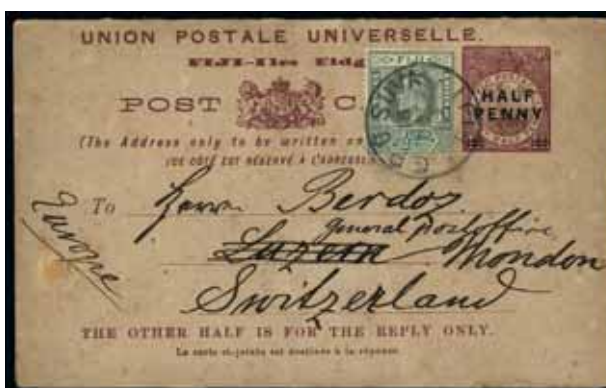 UNION POSTALE UNIVERSELLE.
FIJI-Iles
POST C
FIJI
HALF
PENNY
SUVA
(The Address only to be written on
CE CÔTÉ EST RÉSERVÉ À L'ADRESSE
To Herrn Berdoz
General Postoffice
Luzern Moudon
Switzerland
Europe
THE OTHER HALF IS FOR THE REPLY ONLY.
La carte ci-jointe est destinée à la réponse.